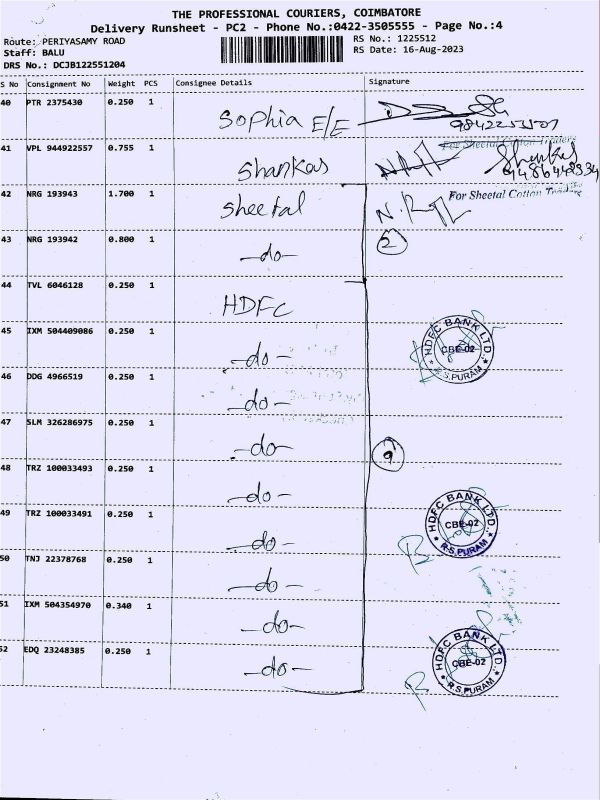 THE PROFESSIONAL COURIERS, COIMBATORE
Delivery Runsheet - PC2 - Phone No.:0422-3505555 - Page No.:4
Route: PERIYASAMY ROAD RS No.: 1225512
Staff: BALU RS Date: 16-Aug-2023
DRS No.: DCJB122551204
S No Consignment No Weight PCS Consignee Details Signature
40 PTR 2375430 0.250 1 Sophia E/E
41 VPL 944922557 0.755 1 Shankar For Sheetal Cotton Traders
42 NRG 193943 1.700 1 Sheetal For Sheetal Cotton
43 NRG 193942 0.800 1 -do- 2
44 TVL 6046128 0.250 1 HDFC
45 IXM 504409086 0.250 1 -do- HDFC BANK LTD. CBE-02 R.S.PURAM
46 DDG 4966519 0.250 1 -do-
47 SLM 326286975 0.250 1 -do- 9
48 TRZ 100033493 0.250 1 -do-
49 TRZ 100033491 0.250 1 -do- HDFC BANK LTD. CBE-02 R.S.PURAM
50 TNJ 22378768 0.250 1 -do-
51 IXM 504354970 0.340 1 -do-
52 EDQ 23248385 0.250 1 -do- HDFC BANK LTD. CBE-02 R.S.PURAM